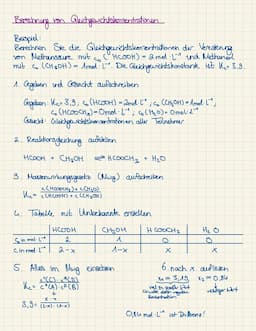 Berechnung von Gleichgewichtskonzentrationen
Beispiel:
Berechnen Sie die Gleichgewichtskonzentrationen der Veresterung
von Methansäure mit c₀(HCOOH) = 2 mol · L⁻¹ und Methanol
mit c₀(CH₃OH) = 1 mol · L⁻¹. Die Gleichgewichtskonstante ist Kc = 3,9.
1. Gegeben und Gesucht aufschreiben
Gegeben: Kc = 3,9, c₀(HCOOH) = 2 mol · L⁻¹, c₀(CH₃OH) = 1 mol · L⁻¹,
c₀(HCOOCH₃) = 0 mol · L⁻¹, c₀(H₂O) = 0 mol · L⁻¹
Gesucht: Gleichgewichtskonzentrationen aller Teilnehmer
2. Reaktionsgleichung aufstellen
HCOOH + CH₃OH ⇌ HCOOCH₃ + H₂O
3. Massenwirkungsgesetz (MWG) aufschreiben
Kc = c(HCOOCH₃) · c(H₂O) / c(HCOOH) · c(CH₃OH)
4. Tabelle mit Unbekannte erstellen
HCOOH CH₃OH HCOOCH₃ H₂O
c₀ in mol · L⁻¹ 2 1 0 0
c in mol · L⁻¹ 2-x 1-x x x
5. Alles im MWG einsetzen
6. nach x auflösen
x₁ = x₂ = 0,84
3,9 = x · x / (2-x) · (1-x)
0,84 mol · L⁻¹ ist Differenz!